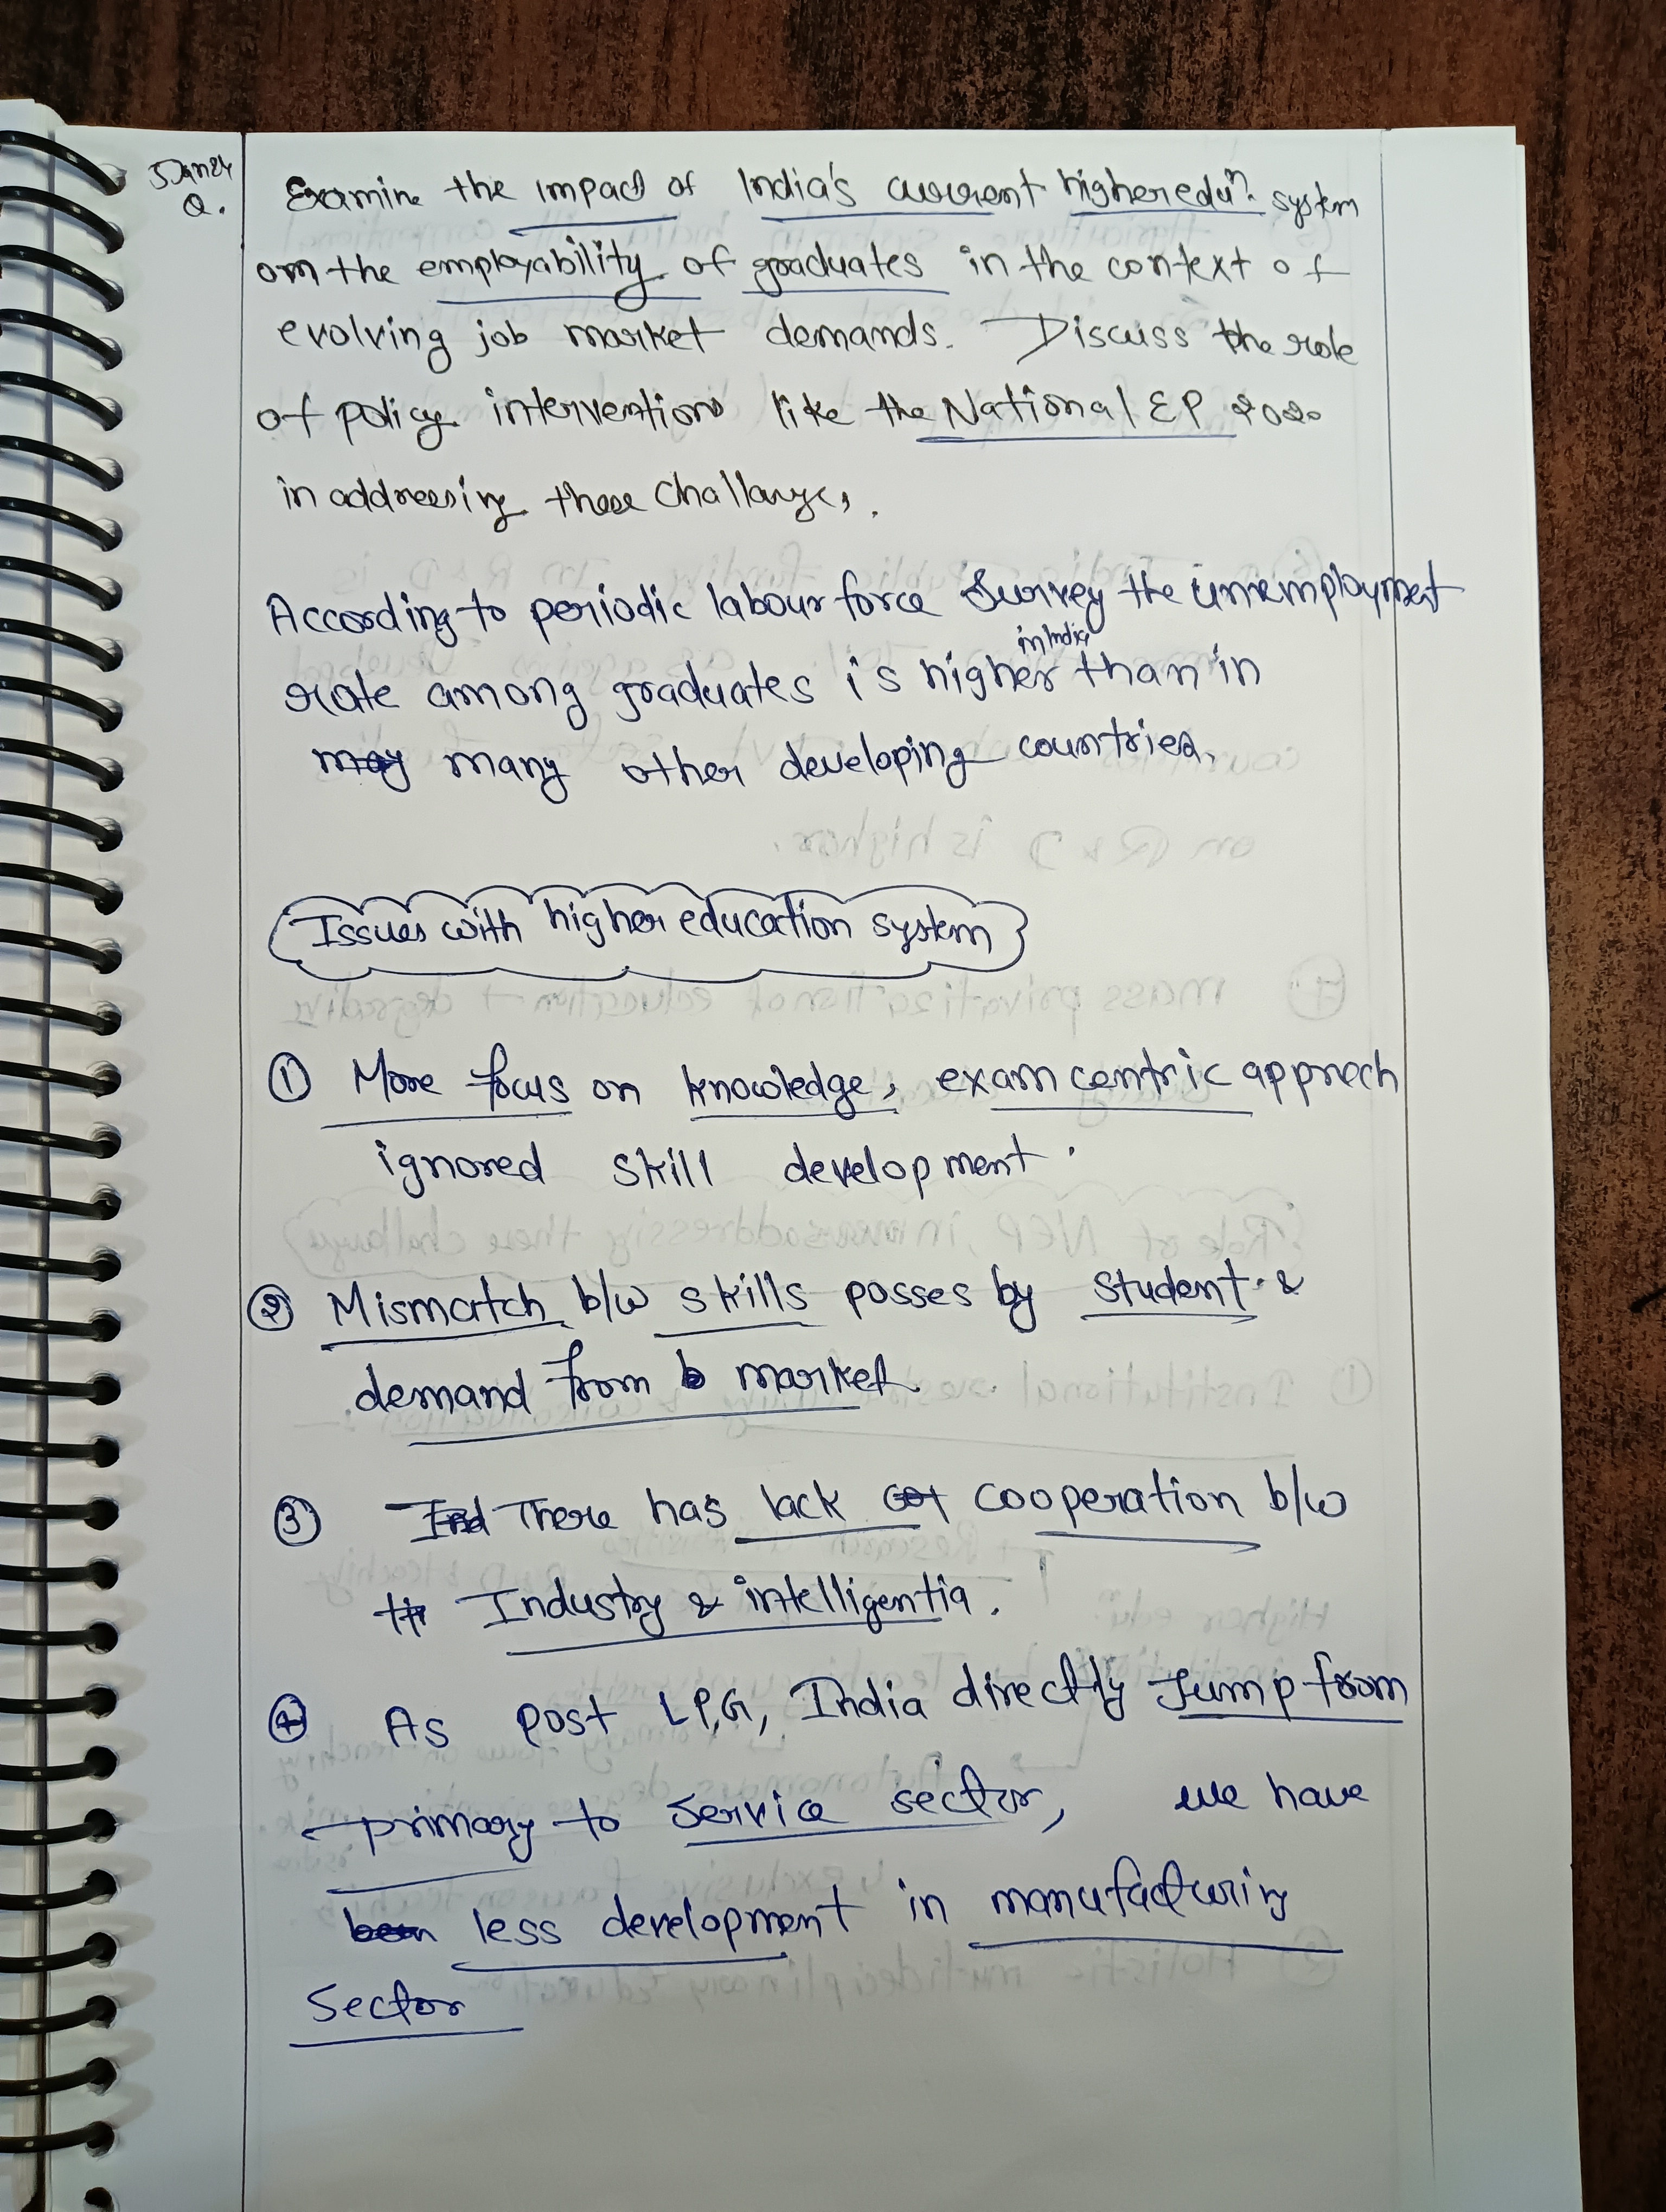 5 Jan 24
Q.
Examine the impact of India's current higher eduⁿ. system
on the employability of graduates in the context of
evolving job market demands. Discuss the role
of policy interventions like the National EP 2020
in addressing these challanges.
According to periodic labour force survey the unemployment
in India
rate among graduates is higher than in
may many other developing countries.
Issues with higher education system
① More focus on knowledge, exam centric approch
ignored skill development.
② Mismatch b/w skills posses by student &
demand from b market.
③ Ind There has lack of cooperation b/w
Industry & intelligentia.
④ As post LPG, India directly Jump from
primary to service sector, we have
been less development in manufacturing
Sector